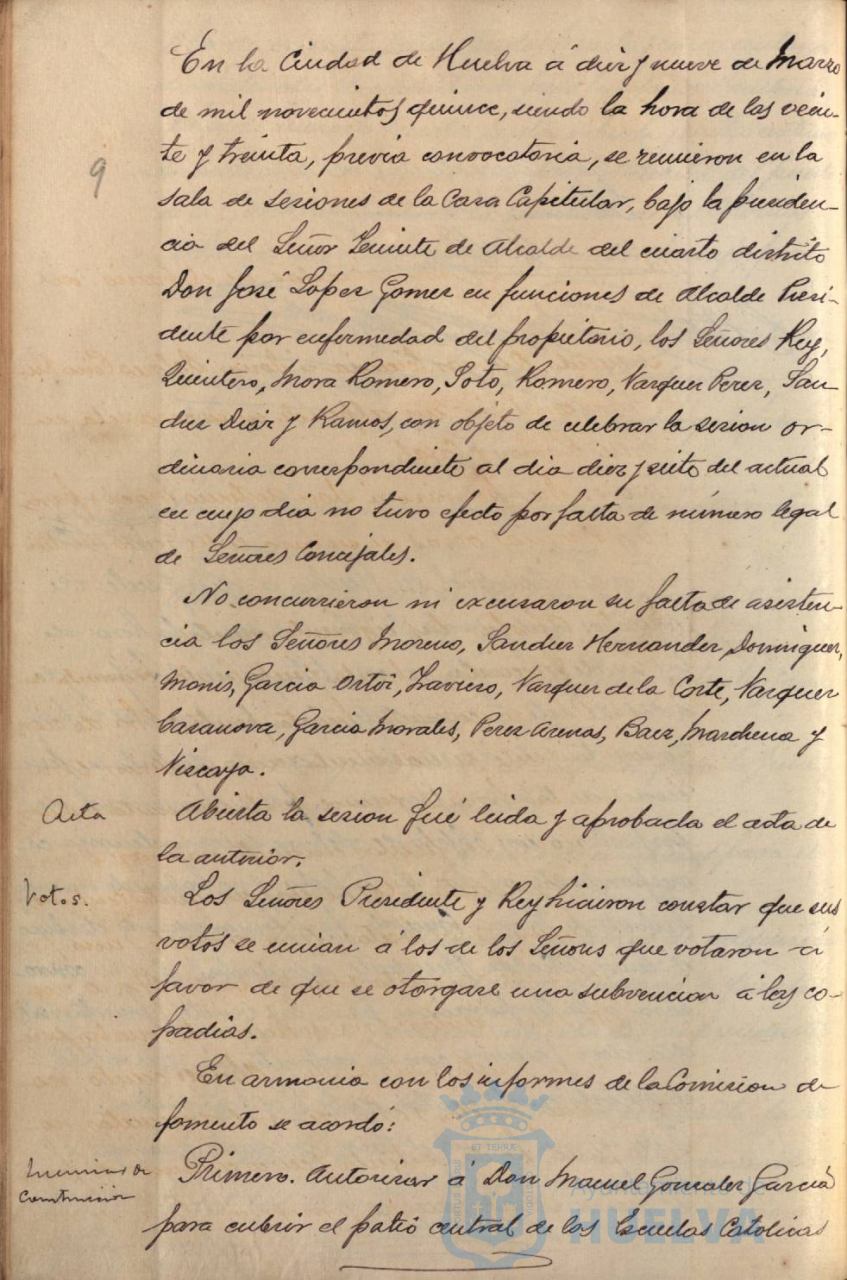 9
En la Ciudad de Huelva á diez y nueve de Marzo
de mil novecientos quince, siendo la hora de las vein-
te y treinta, previa convocatoria, se reunieron en la
sala de sesiones de la Casa Capitular, bajo la presiden-
cia del Señor Teniente de Alcalde del cuarto distrito
Don José Lopez Gomez en funciones de Alcalde Presi-
dente por enfermedad del propietario, los Señores Rey,
Quintero, Mora Romero, Soto, Romero, Vazquez Perez, San-
chez Diaz y Ramos, con objeto de celebrar la sesion or-
dinaria correspondiente al dia diez y siete del actual
en cuyo dia no tuvo efecto por falta de número legal
de Señores Concejales.
No concurrieron ni excusaron su falta de asisten-
cia los Señores Moreno, Sanchez Hernandez, Dominguez,
Monis, Garcia Ortiz, Traviero, Vazquez de la Corte, Vazquez
Casanova, Garcia Morales, Perez Arenas, Baez, Marchena y
Vizcaya.
Acta
Abierta la sesion fué leida y aprobada el acta de
la anterior.
Votos.
Los Señores Presidente y Rey hicieron constar que sus
votos se unian á los de los Señores que votaron á
favor de que se otorgase una subvencion á las co-
fradias.
En armonia con los informes de la Comision de
fomento se acordó:
de
construccion
Primero. Autorizar á Don Manuel Gonzalez García
para cubrir el patio central de las Escuelas Catolicas
ET TERRÆ
Ayuntamiento de
HUELVA